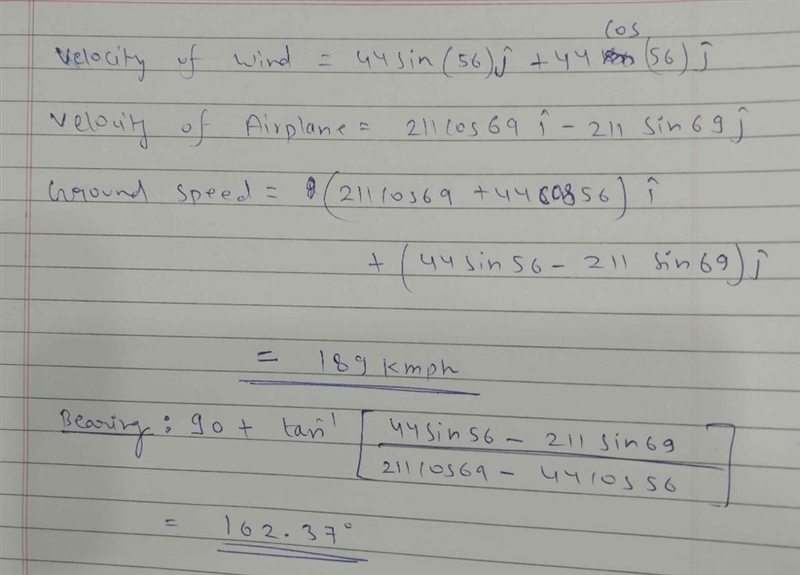 Velocity of wind = 44 sin (56) ĵ + 44 cos (56) ĵ
Velocity of Airplane = 211 cos 69 î - 211 sin 69 ĵ
Ground speed = (211 cos 69 + 44 cos 56) î
+ (44 sin 56 - 211 sin 69) ĵ
= 189 kmph
Bearing : 90 + tan⁻¹ [ 44 sin 56 - 211 sin 69
211 cos 69 - 44 cos 56 ]
= 162.37°